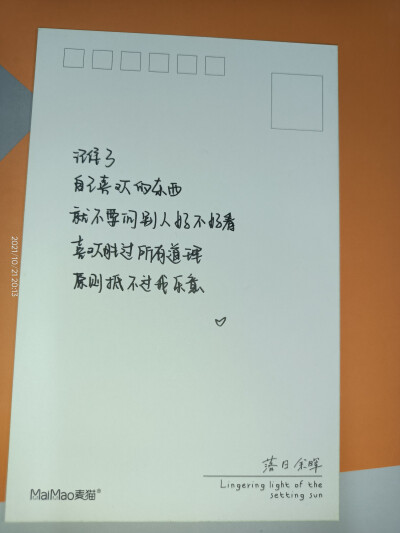 记住了
自己喜欢的东西
就不要问别人好不好看
喜欢胜过所有道理
原则抵不过我乐意
落日余晖
Lingering light of the
setting sun
MaiMao麦猫®
2021/10/21 20:13